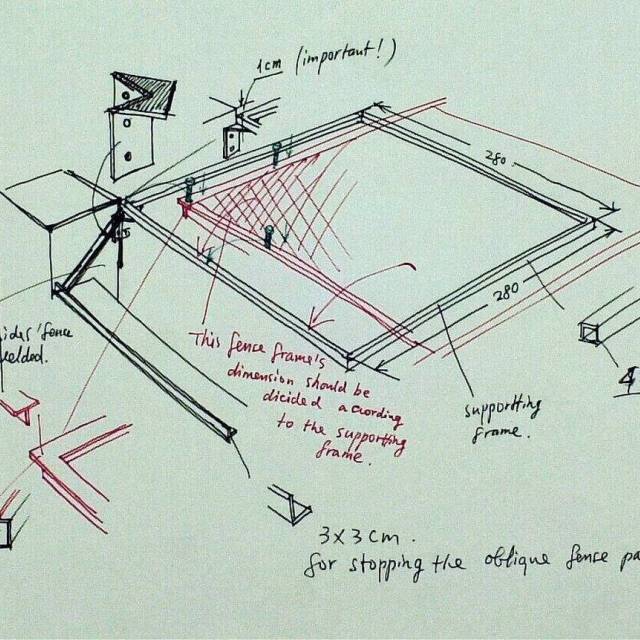 1cm (important!)
280
280
ides' fence
welded.
This fence frame's
dimension should be
dicided acuording
to the supportting
frame.
supportting
frame.
4
3x3cm.
for stopping the oblique fence pa